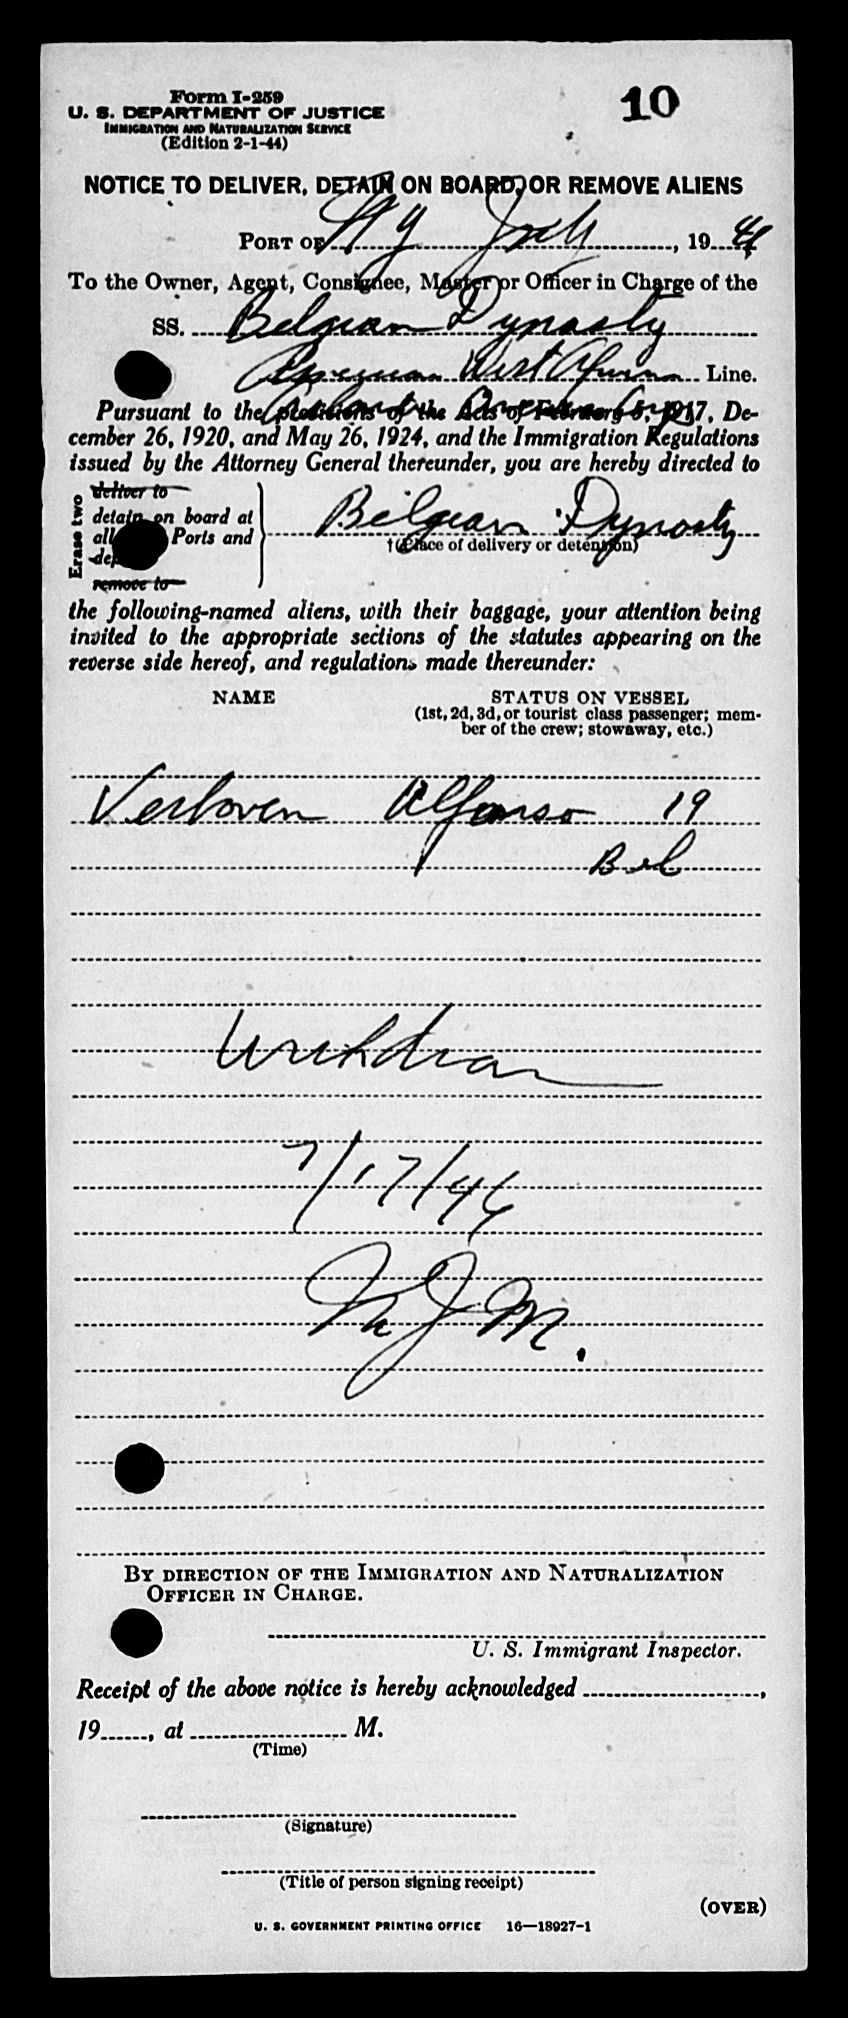 Form I-259
10
U. S. DEPARTMENT OF JUSTICE
IMMIGRATION AND NATURALIZATION SERVICE
(Edition 2-1-44)
NOTICE TO DELIVER, DETAIN ON BOARD, OR REMOVE ALIENS
PORT OF N Y July, 19
To the Owner, Agent, Consignee, Master or Officer in Charge of the
SS. Belgian Dynasty
West African Line.
Pursuant to the provisions of the Acts of February 5, 1917, De-
cember 26, 1920, and May 26, 1924, and the Immigration Regulations
issued by the Attorney General thereunder, you are hereby directed to
Erase two
deliver to
detain on board at
all Ports and
Belgian Dynasty
†(Place of delivery or detention)
remove to
the following-named aliens, with their baggage, your attention being
invited to the appropriate sections of the statutes appearing on the
reverse side hereof, and regulations made thereunder:
NAME STATUS ON VESSEL
(1st, 2d, 3d, or tourist class passenger; mem-
ber of the crew; stowaway, etc.)
Verhoven Alfonso 19
Bel
Withdrawn
7/17/46
M.
BY DIRECTION OF THE IMMIGRATION AND NATURALIZATION
OFFICER IN CHARGE.
U. S. Immigrant Inspector.
Receipt of the above notice is hereby acknowledged ,
19 , at M.
(Time)
(Signature)
(Title of person signing receipt)
(OVER)
U. S. GOVERNMENT PRINTING OFFICE 16—18927-1